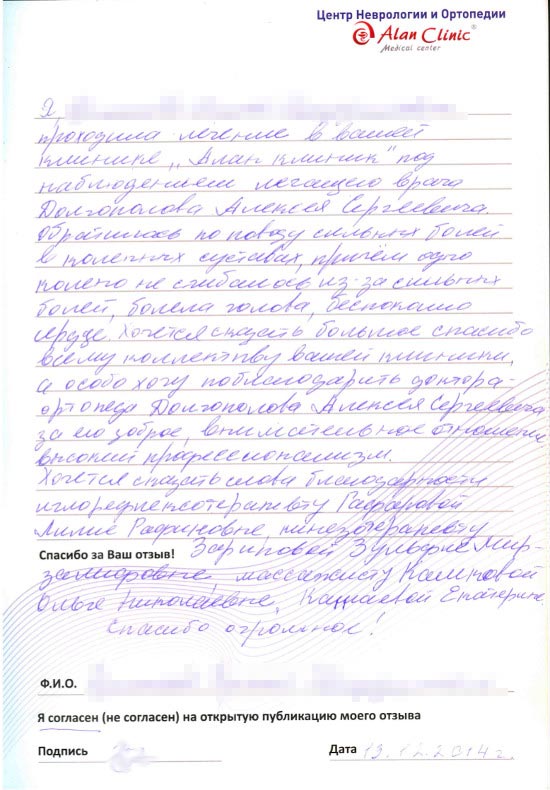 Центр Неврологии и Ортопедии
Alan Clinic®
Medical center
Я,
проходила лечение в вашей
клинике „Алан клиник" под
наблюдением лечащего врача
Долгополова Алексея Сергеевича.
Обратилась по поводу сильных болей
в коленных суставах, причём одно
колено не сгибалось из-за сильных
болей, болела голова, беспокоило
сердце. Хочется сказать большое спасибо
всему коллективу вашей клиники,
а особо хочу поблагодарить доктора-
ортопеда Долгополова Алексея Сергеевича
за его доброе, внимательное отношение
высокий профессионализм.
Хочется сказать слова благодарности
иглорефлексотерапевту Гафаровой
Лилие Рафиковне, кинезотерапевту
Спасибо за Ваш отзыв! Зариповой Зульфие Мир-
замаровне, массажисту Калиновой
Ольге Николаевне, Катаевой Екатерине.
Спасибо огромное!
Ф.И.О.
Я согласен (не согласен) на открытую публикацию моего отзыва
Подпись
Дата 13.12.2014г.